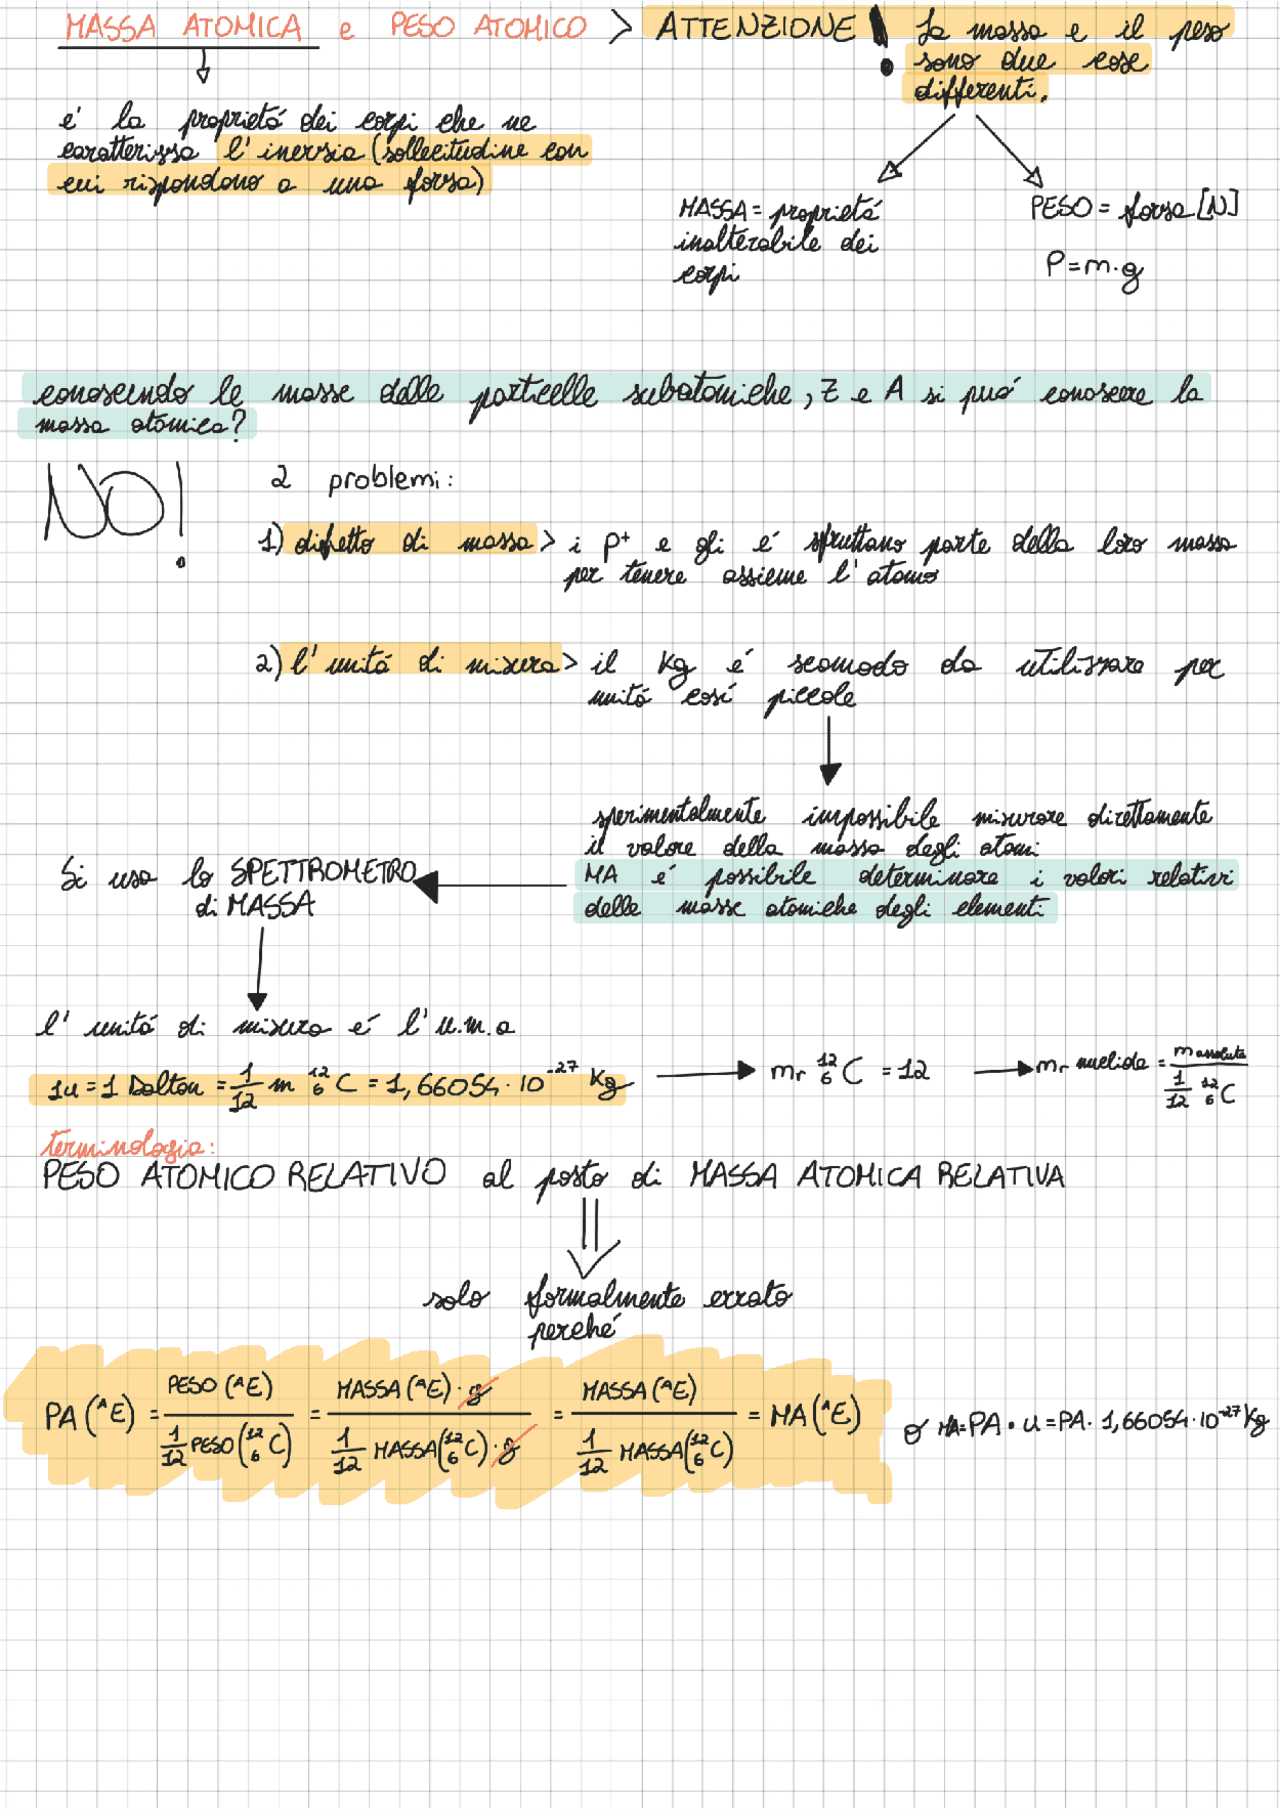 MASSA ATOMICA e PESO ATOMICO > ATTENZIONE! La massa e il peso
sono due cose
differenti.
é la proprietá dei corpi che ne
caratterizza l'inerzia (sollecitudine con
cui rispondono a una forza)
MASSA = proprietá
inalterabile dei
corpi
PESO = forza [N]
P = m·g
conoscendo le masse delle particelle subatomiche, Z e A si puó conoscere la
massa atomica?
NO!
2 problemi:
1) difetto di massa > i P⁺ e gli é sfruttano parte della loro massa
per tenere assieme l'atomo
2) l'unitá di misura > il Kg é scomodo da utilizzare per
unitá cosí piccole
sperimentalmente impossibile misurare direttamente
il valore della massa degli atomi
MA é possibile determinare i valori relativi
delle masse atomiche degli elementi
Si usa lo SPETTROMETRO
di MASSA
l'unitá di misura é l'u.m.a
1u = 1 Dalton = 1/12 m ¹²₆C = 1,66054·10⁻²⁷ Kg → mr ¹²₆C = 12 → mr nuclide = m assoluta / 1/12 ¹²₆C
terminologia:
PESO ATOMICO RELATIVO al posto di MASSA ATOMICA RELATIVA
solo formalmente errato
perché
PA(ᴬE) = PESO(ᴬE) / 1/12 PESO(¹²₆C) = MASSA(ᴬE)·g / 1/12 MASSA(¹²₆C)·g = MASSA(ᴬE) / 1/12 MASSA(¹²₆C) = MA(ᴬE) o MA = PA·u = PA·1,66054·10⁻²⁷ Kg